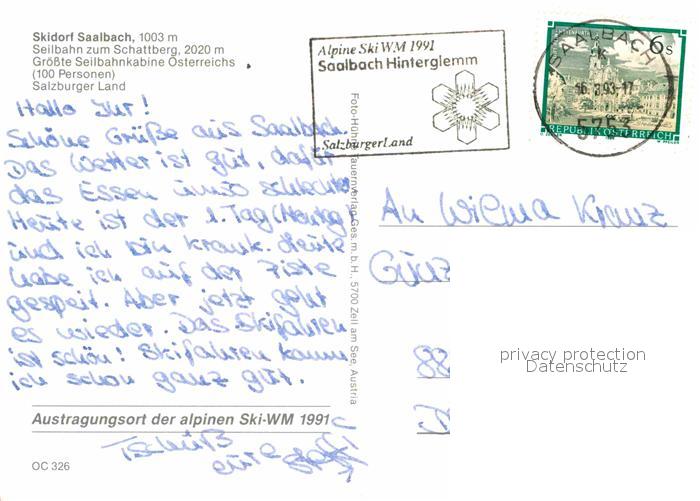 Skidorf Saalbach, 1003 m
Seilbahn zum Schattberg, 2020 m
Größte Seilbahnkabine Österreichs
(100 Personen)
Salzburger Land
Hallo Ihr!
Schöne Grüße aus Saalbach.
Das Wetter ist gut, dafür
das Essen umso schlechter
Heute ist der 1. Tag (Montag)
und ich bin krank. Heute
habe ich auf der Piste
gespeit. Aber jetzt geht
es wieder. Das Skifahren
ist schön! Skifahren kann
ich schon ganz gut.
Austragungsort der alpinen Ski-WM 1991
Tschüß
eure
OC 326
Alpine Ski WM 1991
Saalbach Hinterglemm
Salzburger Land
SAALBACH
-6. 3.93-17
5753
6 S
REPUBLIK ÖSTERREICH
An Wilma Kranz
88
privacy protection
Datenschutz